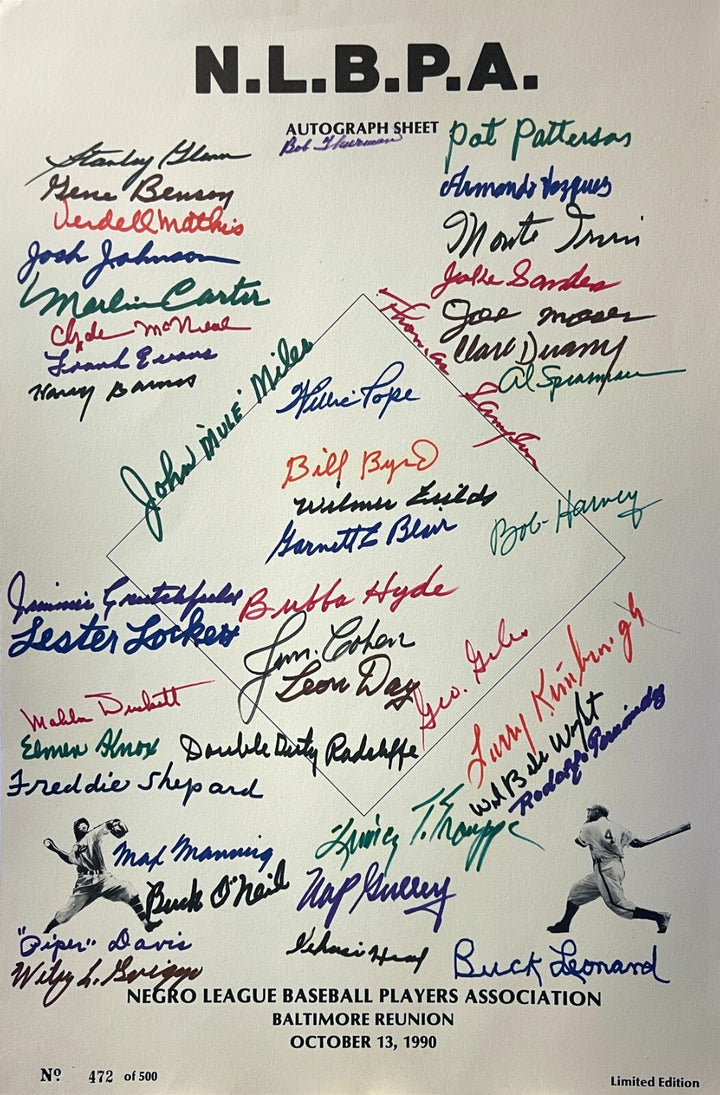 N.L.B.P.A.
AUTOGRAPH SHEET
Bob Thurman
Pat Patterson
Stanley Glenn
Armando Vazquez
Gene Benson
Verdell Mathis
Monte Irvin
Josh Johnson
Julie Sanders
Merlin Carter
Joe
Clyde McNeal
Frank Evans
Al Spearman
Harry Barnes
Thomas Sampson
John "Mule" Miles
Willie Pope
Bill Byrd
Wilmer Fields
Garnett E Blair
Bob Harvey
Jimmie Crutchfield
Bubba Hyde
Lester Lockett
Jim. Cohen
Leon Day
Geo. Giles
Larry Kimbrough
Mahlon Duckett
Elmer Knox
Double Duty Radcliffe
Freddie Shepard
Rodolfo Fernandez
Quincy T. Trouppe
Max Manning
Buck O'Neil
Nap Gulley
"Piper" Davis
Jehosie Heard
Buck Leonard
Wiley L. Griggs
4
NEGRO LEAGUE BASEBALL PLAYERS ASSOCIATION
BALTIMORE REUNION
OCTOBER 13, 1990
Nº 472 of 500
Limited Edition